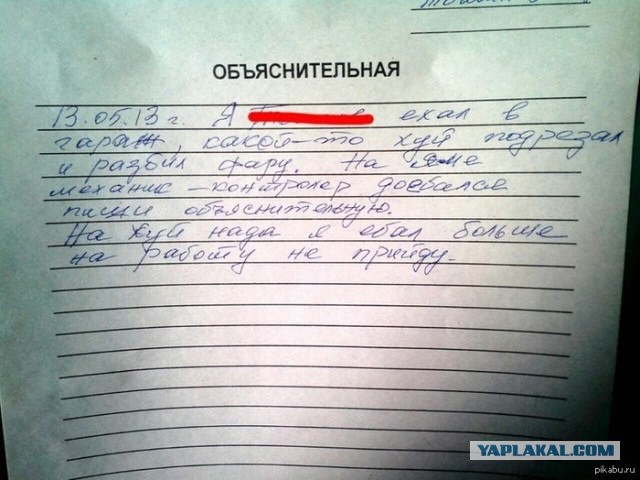 ОБЪЯСНИТЕЛЬНАЯ
13.05.13 г. Я ехал в
гараж, какой-то хуй подрезал
и разбил фару. На яме
механик-контролер доебался
пищи объяснительную.
На хуй нада я ебал больше
на работу не прийду.
YAPLAKAL.COM
pikabu.ru